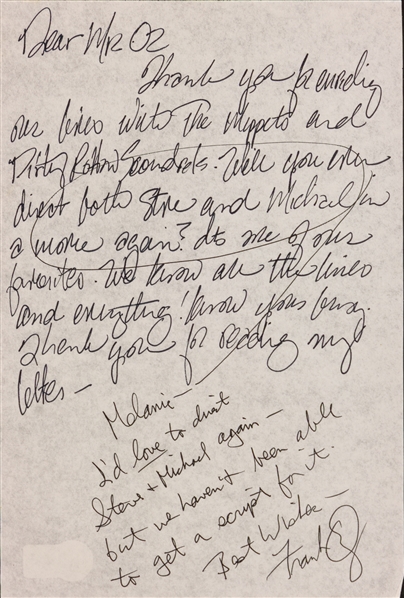 Dear Mr. Oz
Thank you for enriching
our lives with The Muppets and
Dirty Rotten Scoundrels. Will you ever
direct both Steve and Michael in
a movie again? Its one of our
favorites. We know all the lines
and everything! I know your busy.
Thank you for reading my
letter –
Melanie –
I'd love to direct
Steve + Michael again –
but we haven't been able
to get a script for it.
Best Wishes –
Frank Oz